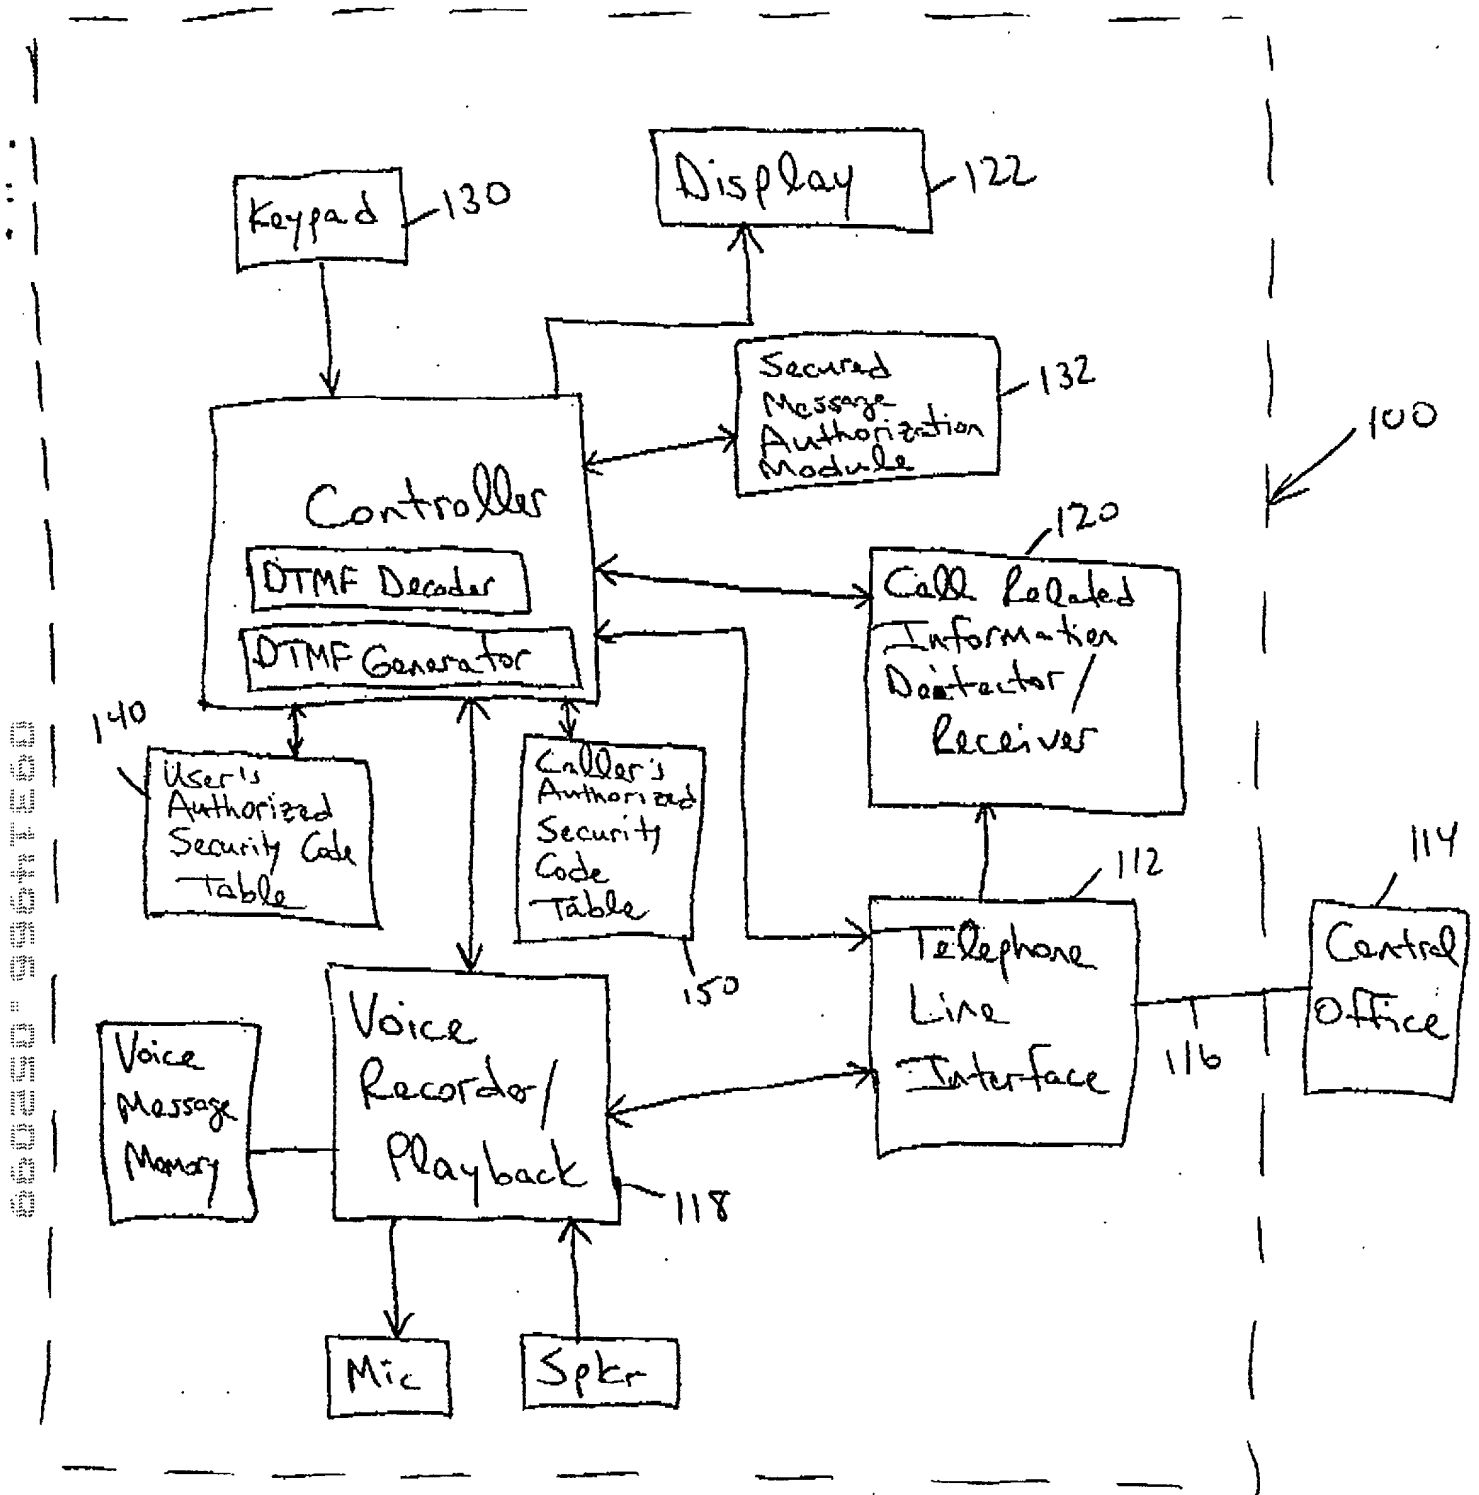 Display
122
Keypad
130
Secured
Message
Authorization
Module
132
100
Controller
DTMF Decoder
DTMF Generator
120
Call Related
Information
Detector/
Receiver
140
User's
Authorized
Security Code
Table
Caller's
Authorized
Security
Code
Table
150
112
Telephone
Line
Interface
116
114
Central
Office
Voice
Message
Memory
Voice
Recorder/
Playback
118
Mic
Spkr